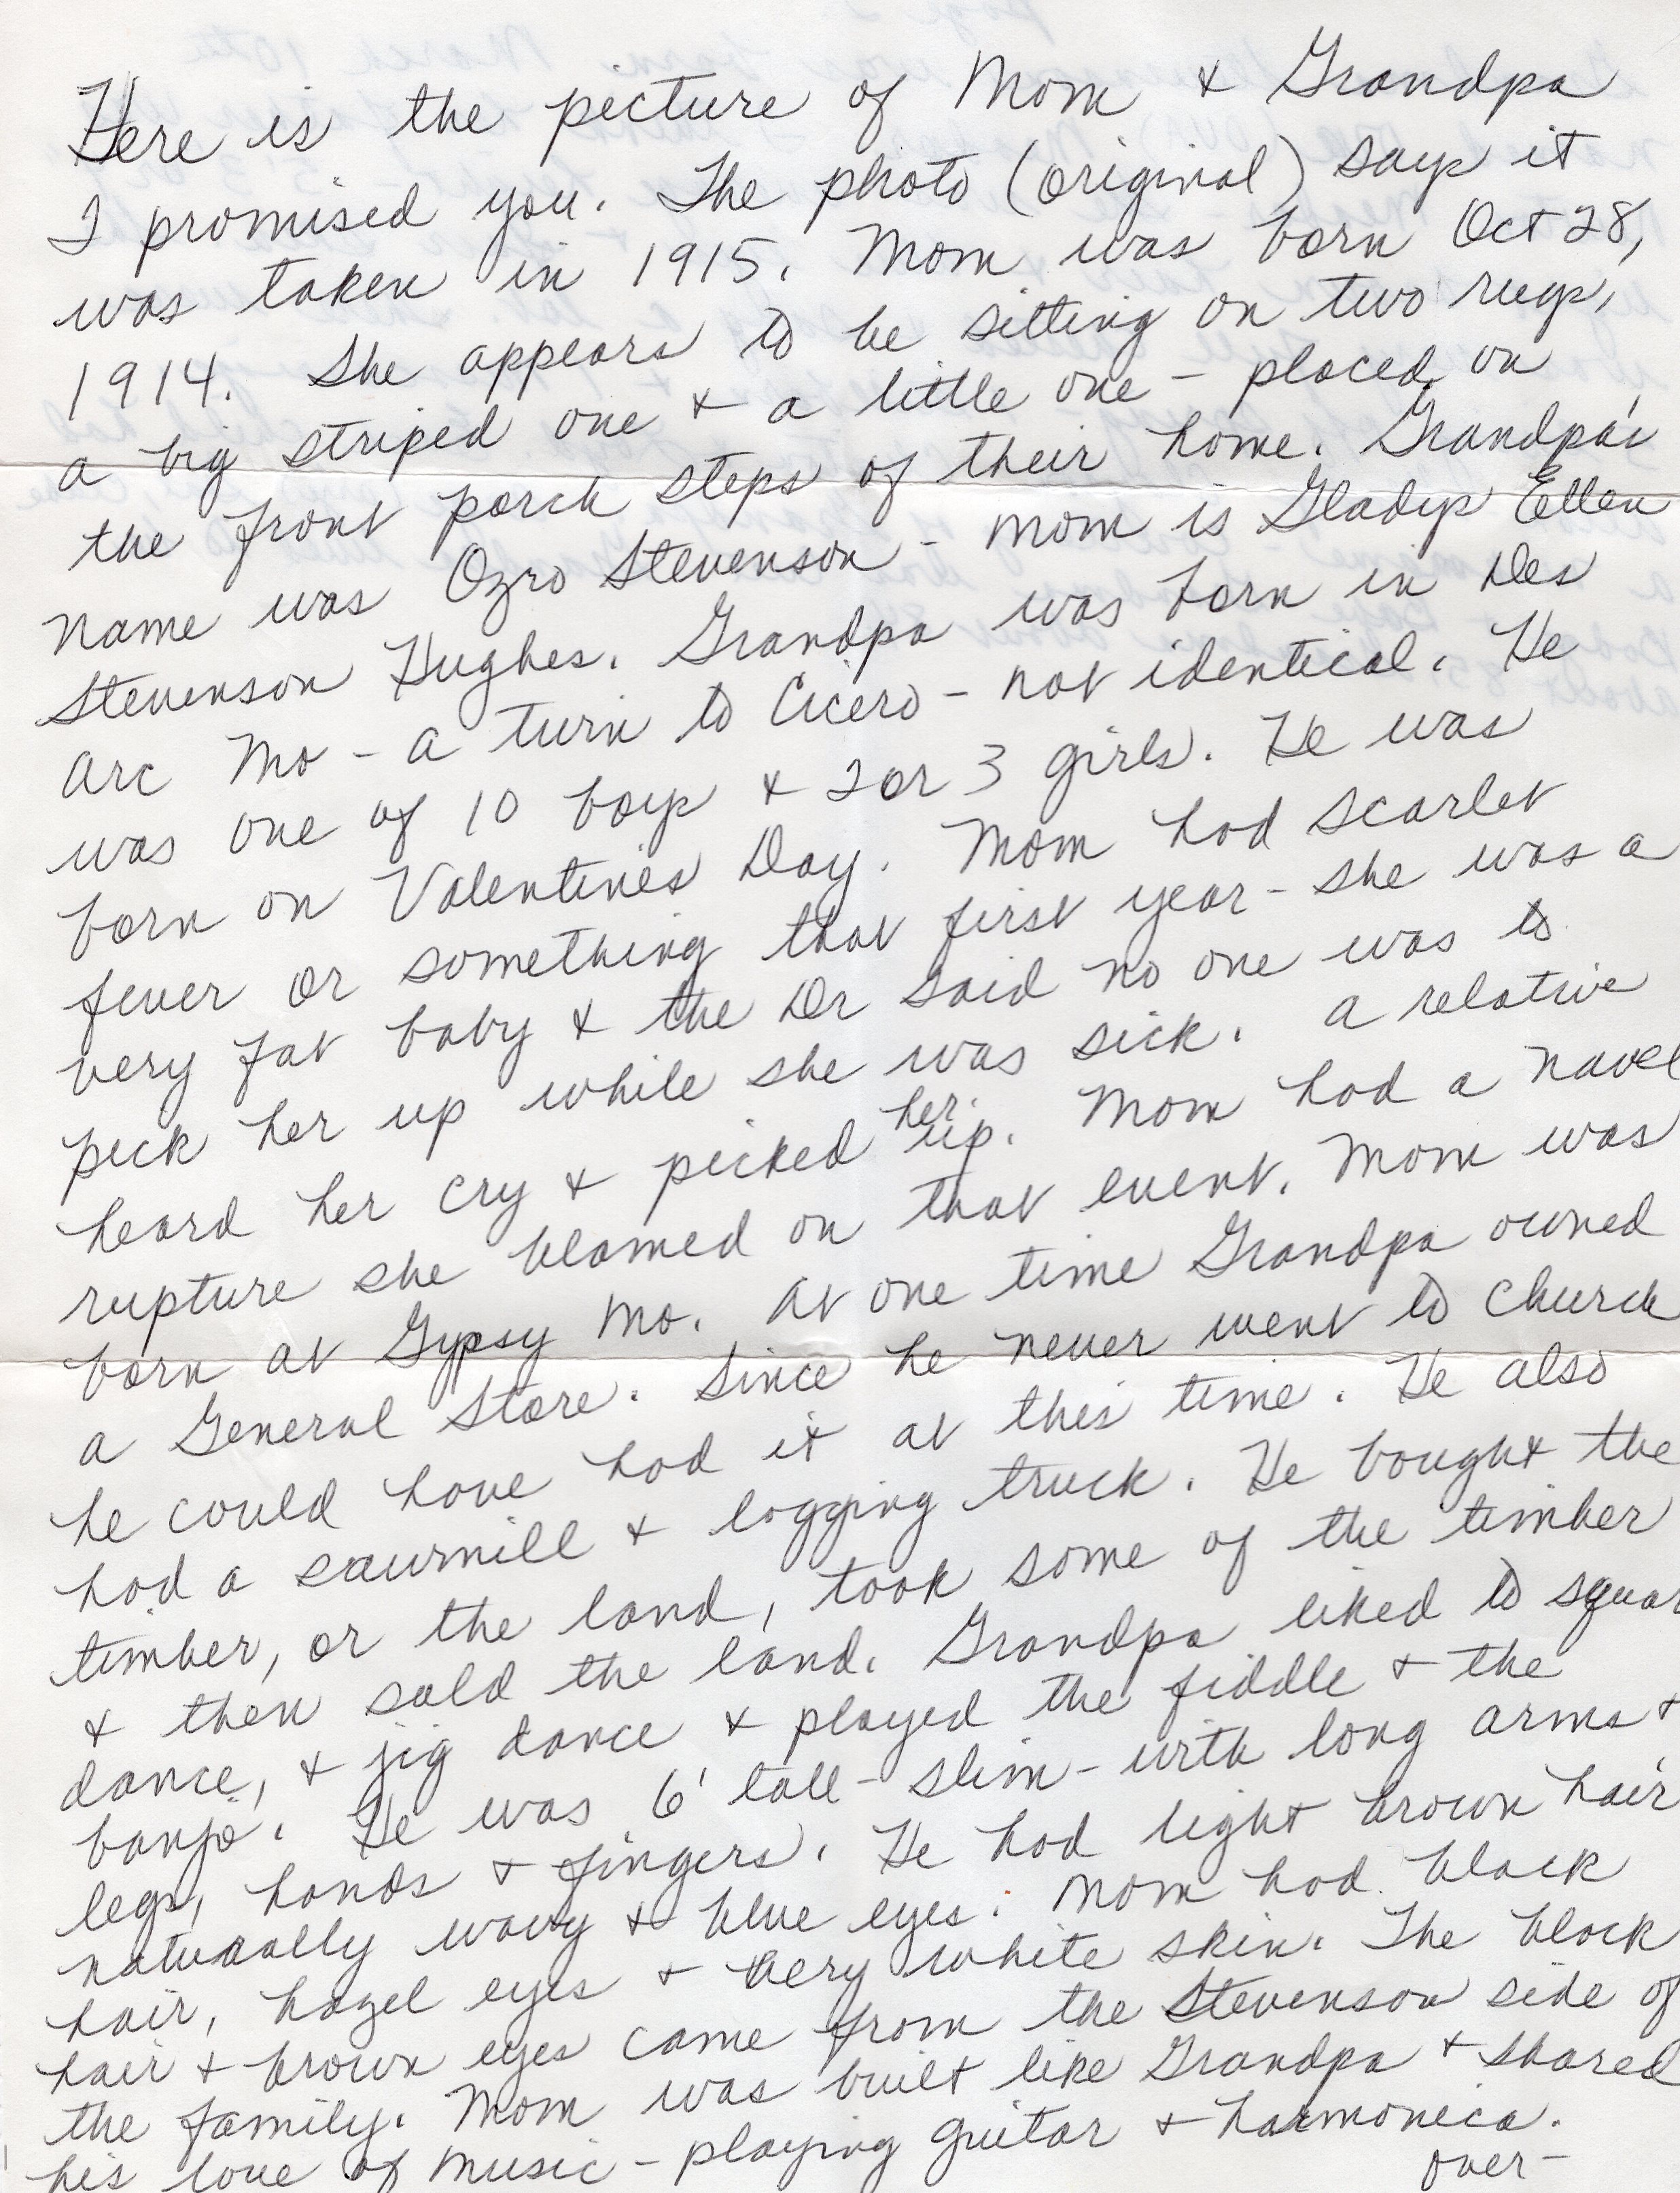 Here is the picture of Mom & Grandpa
I promised you. The photo (original) says it
was taken in 1915. Mom was born Oct 28,
1914. She appears to be sitting on two rugs,
a big striped one & a little one - placed on
the front porch steps of their home. Grandpa's
name was Ozro Stevenson - Mom is Gladys Ellen
Stevenson Hughes. Grandpa was born in Des
Arc Mo - a twin to Cicero - not identical. He
was one of 10 boys & 2 or 3 girls. He was
born on Valentines Day. Mom had scarlet
fever or something that first year - she was a
very fat baby & the Dr said no one was to
pick her up while she was sick. A relative
heard her cry & picked her up. Mom had a navel
rupture she blamed on that event. Mom was
born at Gypsy Mo. At one time Grandpa owned
a General Store. Since he never went to church
he could have had it at this time. He also
had a sawmill & logging truck. He bought the
timber, or the land, took some of the timber
& then sold the land. Grandpa liked to squar
dance, & jig dance & played the fiddle & the
banjo. He was 6' tall - slim - with long arms &
legs, hands & fingers. He had light brown hair
naturally wavy & blue eyes. Mom had black
hair, hazel eyes & very white skin. The black
hair & brown eyes came from the Stevenson side of
the family. Mom was built like Grandpa & shared
his love of music - playing guitar & harmonica.
over -